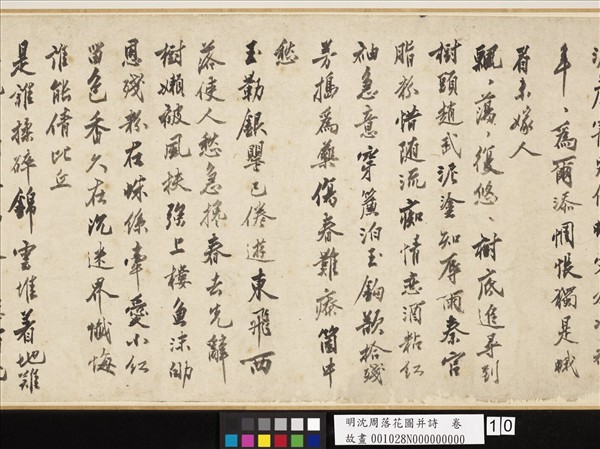 年、為爾添惆悵獨是蛾
眉未嫁人
飄、蕩、復悠、樹底追尋到
樹頭趙武泥塗知辱雨秦宮
脂粉惜隨流痴情戀酒粘紅
袖急意穿簾泊玉鈎欲拾殘
芳搗為藥傷春難療箇中
愁
玉勒銀罌已倦遊東飛西
落使人愁急攙春去先辭
樹嬾被風扶強上樓魚沫劬
恩殘粉在蛛絲牽愛小紅
留色香久在沉迷界懺悔
誰能倩比丘
是誰揉碎錦雲堆着地難
明沈周落花圖并詩 卷
故畫 001028N000000000
10